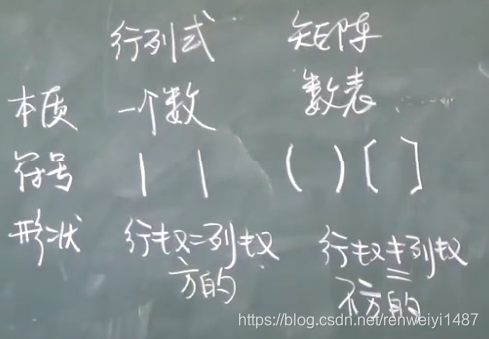 行列式 矩阵
本质 一个数 数表
符号 | | ( ) [ ]
形状 行数=列数 行数≠列数
方的 不方的
https://blog.csdn.net/renweiyi1487